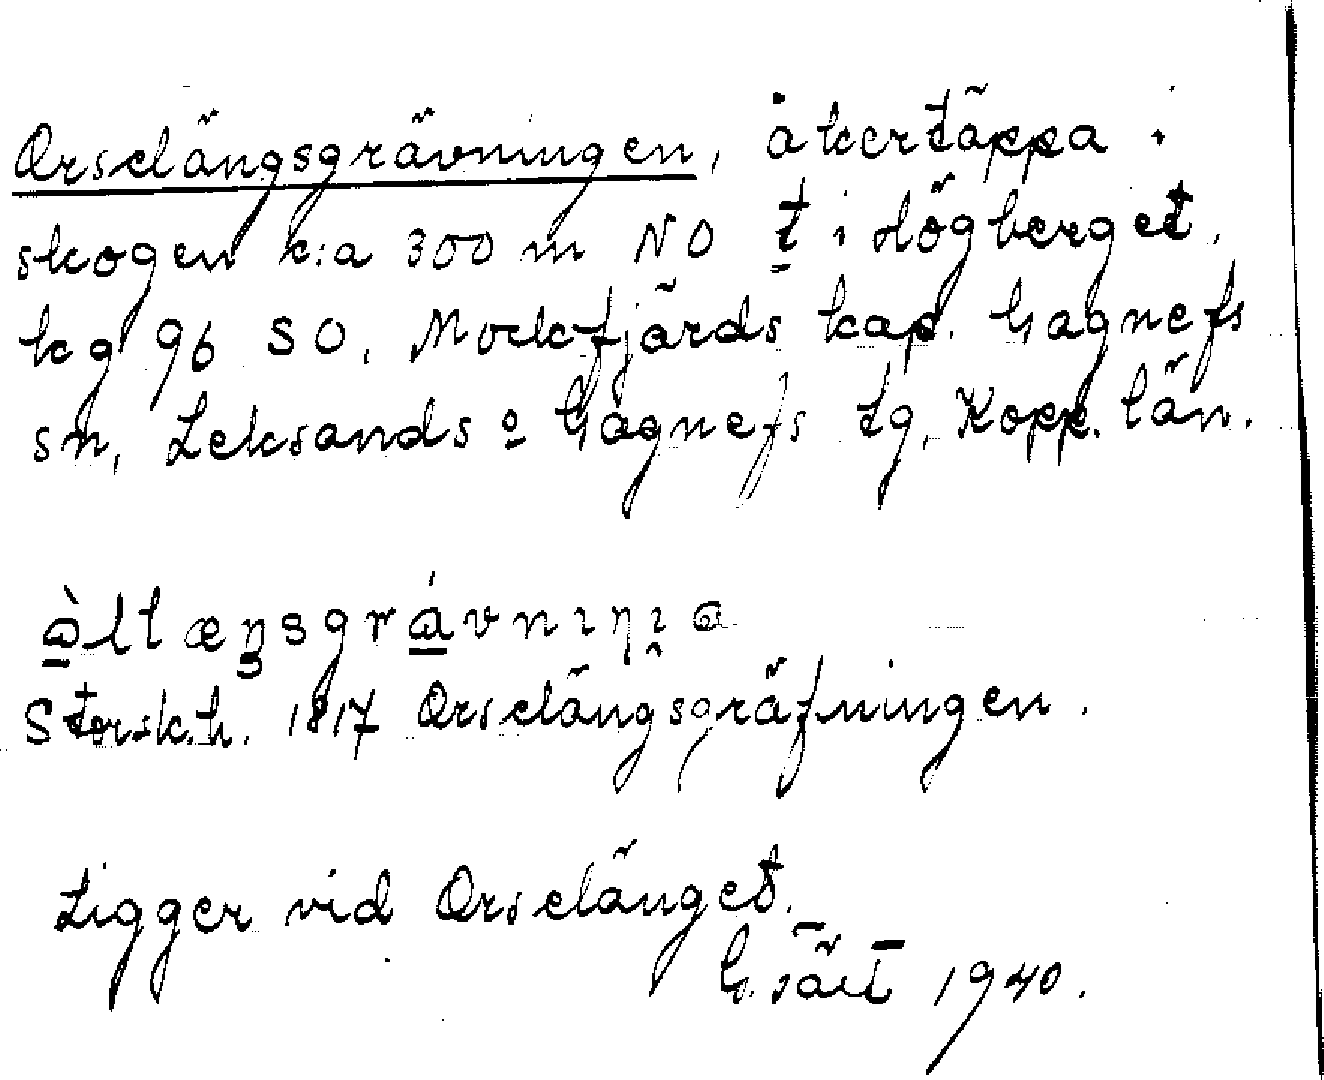 Orselängsgrävningen, åkertäppa i
skogen k:a 300 m NO t i Högberget,
kg 96 SO, Mockfjärds kap. Gagnefs
sn, Leksands o Gagnefs tg, Kopp. län.
Storsk.h. 1817 Orselängsgräfningen.
Ligger vid Orselänget.
G. 1940.